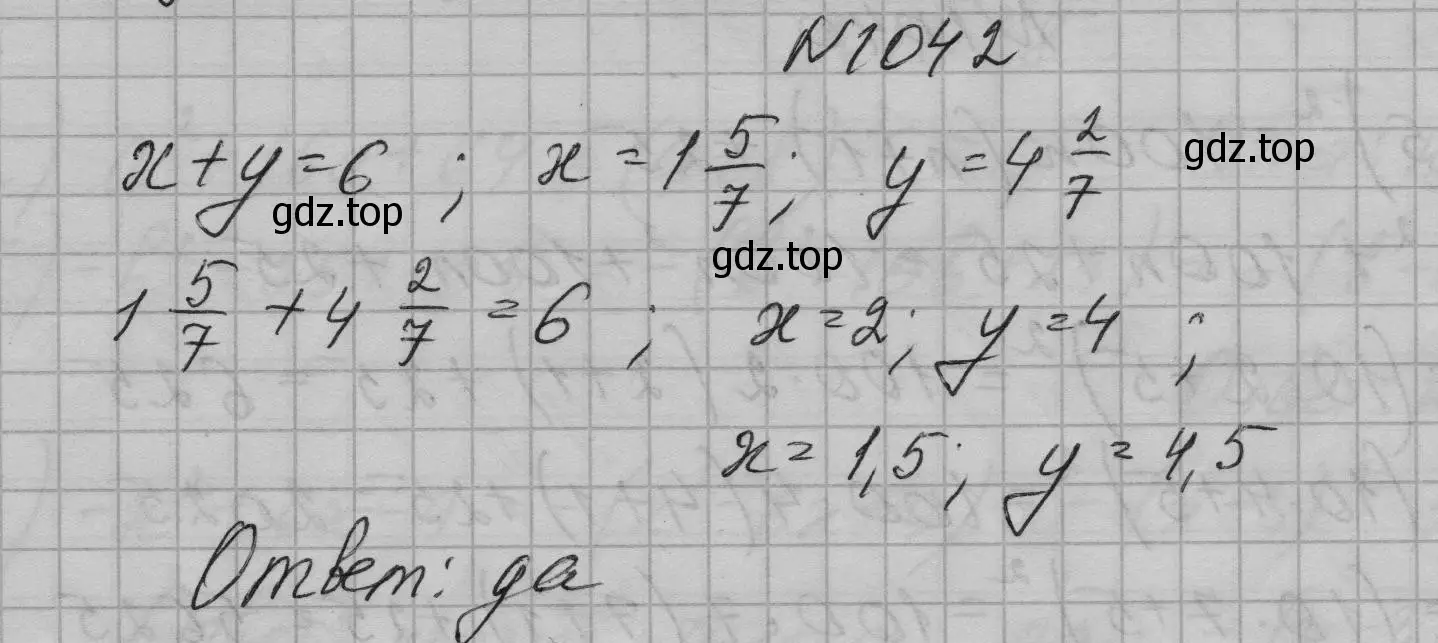 N1042
x + y = 6 ; x = 1 5/7 ; y = 4 2/7
gdz.top
gdz.top
gdz.top
1 5/7 + 4 2/7 = 6 ; x = 2 ; y = 4 ;
x = 1,5 ; y = 4,5
Ответ: да